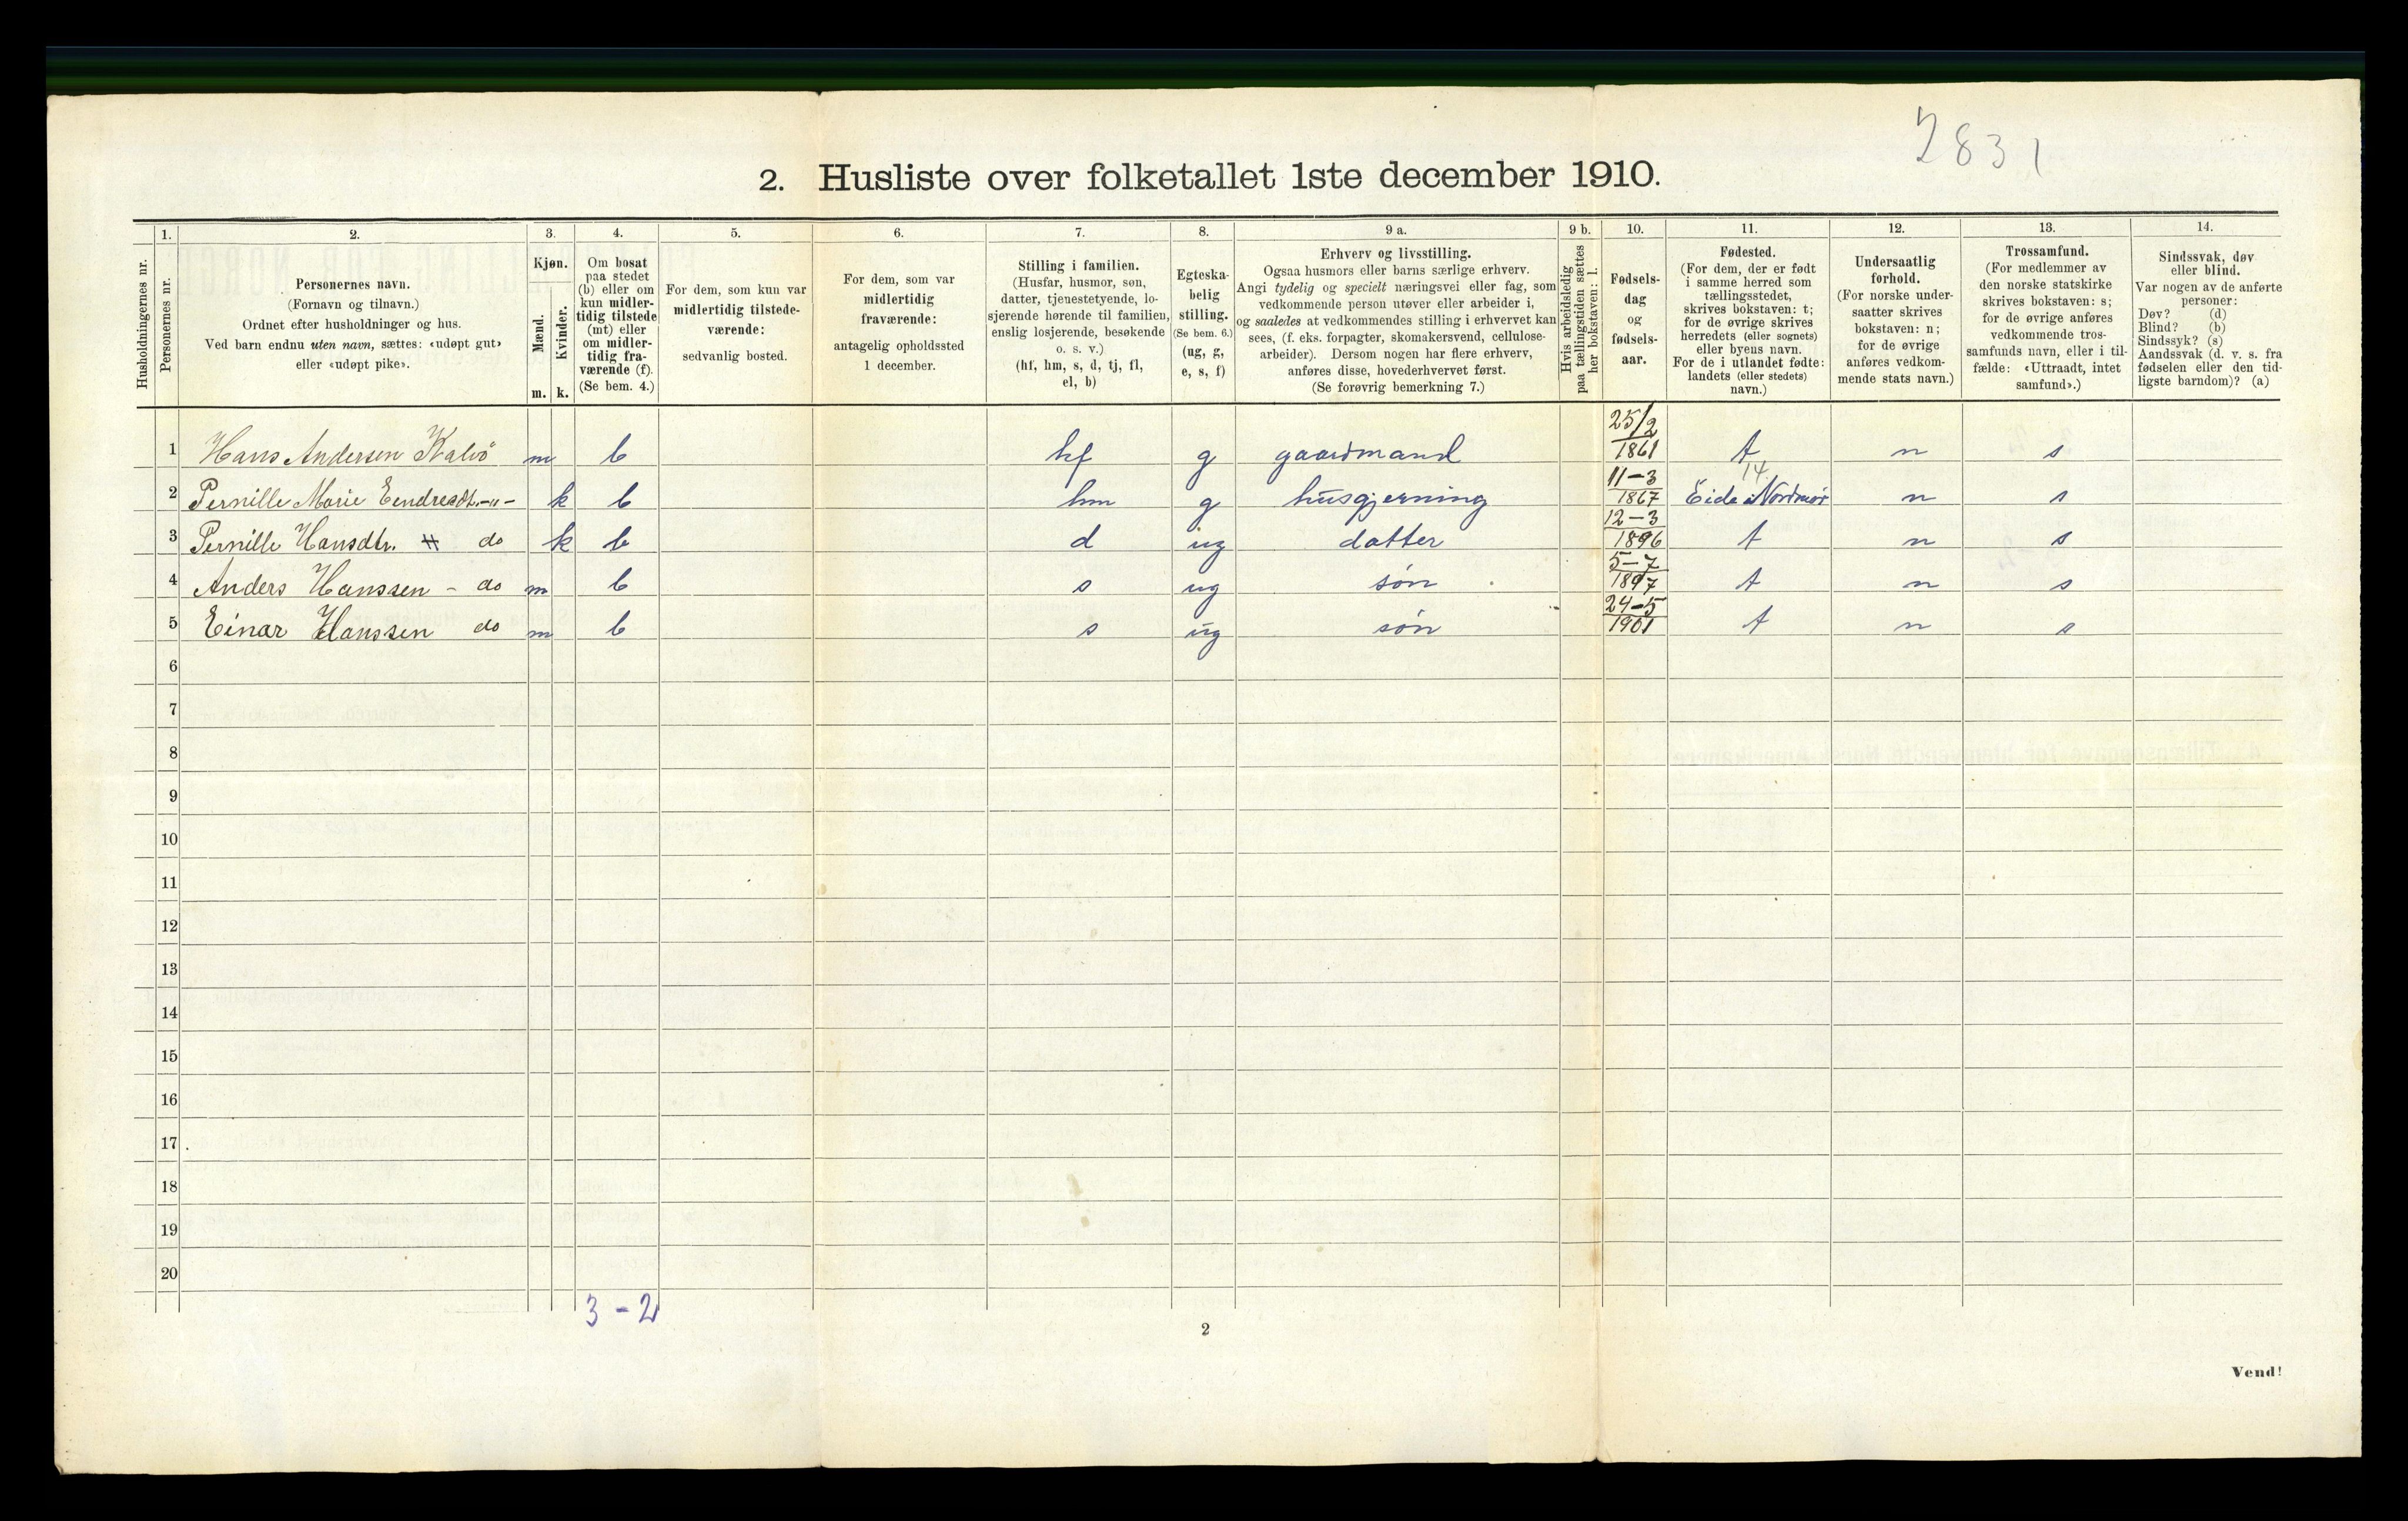 2831
2. Husliste over folketallet 1ste december 1910.
Husholdningernes nr.
1.
Personernes nr.
2.
Personernes navn.
(Fornavn og tilnavn.)
Ordnet efter husholdninger og hus.
Ved barn endnu uten navn, sættes: «udøpt gut»
eller «udøpt pike».
3.
Kjøn.
Mænd.
Kvinder.
m. k.
4.
Om bosat
paa stedet
(b) eller om
kun midler-
tidig tilstede
(mt) eller
om midler-
tidig fra-
værende (f).
(Se bem. 4.)
5.
For dem, som kun var
midlertidig tilstede-
værende:
sedvanlig bosted.
6.
For dem, som var
midlertidig
fraværende:
antagelig opholdssted
1 december.
7.
Stilling i familien.
(Husfar, husmor, søn,
datter, tjenestetyende, lo-
sjerende hørende til familien,
enslig losjerende, besøkende
o. s. v.)
(hf, hm, s, d, tj, fl,
el, b)
8.
Egteska-
belig
stilling.
(Se bem. 6.)
(ug, g,
e, s, f)
9 a.
Erhverv og livsstilling.
Ogsaa husmors eller barns særlige erhverv.
Angi tydelig og specielt næringsvei eller fag, som
vedkommende person utøver eller arbeider i,
og saaledes at vedkommendes stilling i erhvervet kan
sees, (f. eks. forpagter, skomakersvend, cellulose-
arbeider). Dersom nogen har flere erhverv,
anføres disse, hovederhvervet først.
(Se forøvrig bemerkning 7.)
9 b.
Hvis arbeidsledig
paa tællingstiden sættes
her bokstaven: l.
10.
Fødsels-
dag
og
fødsels-
aar.
11.
Fødested.
(For dem, der er født
i samme herred som
tællingsstedet,
skrives bokstaven: t;
for de øvrige skrives
herredets (eller sognets)
eller byens navn.
For de i utlandet fødte:
landets (eller stedets)
navn.)
12.
Undersaatlig
forhold.
(For norske under-
saatter skrives
bokstaven: n;
for de øvrige
anføres vedkom-
mende stats navn.)
13.
Trossamfund.
(For medlemmer av
den norske statskirke
skrives bokstaven: s;
for de øvrige anføres
vedkommende tros-
samfunds navn, eller i til-
fælde: «Uttraadt, intet
samfund».)
14.
Sindssvak, døv
eller blind.
Var nogen av de anførte
personer:
Døv? (d)
Blind? (b)
Sindssyk? (s)
Aandssvak (d. v. s. fra
fødselen eller den tid-
ligste barndom)? (a)
1 Hans Andersen Kalvö m b hf g gaardmand 25/2 1861 t n s
2 Pernille Marie Eendresdt. -"- k b hm g husgjerning 11-3 1867 14 Eide Nordmør n s
3 Pernille Hansdtr. do k b d ug datter 12-3 1896 t n s
4 Anders Hanssen - do m b s ug søn 5-7 1897 t n s
5 Einar Hanssen do m b s ug søn 24-5 1901 t n s
6
7
8
9
10
11
12
13
14
15
16
17
18
19
20
3-2
2
Vend!